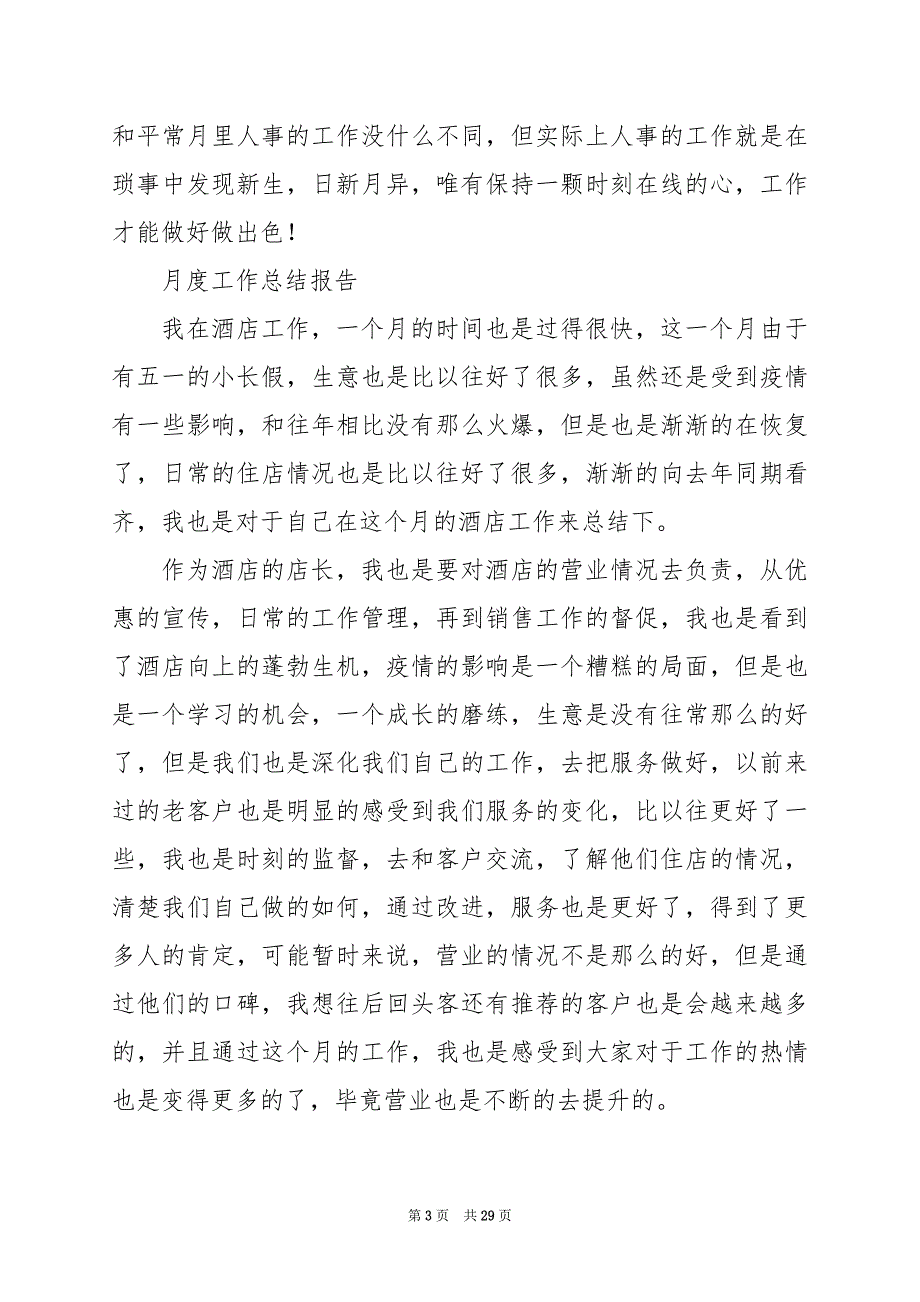 和平常月里人事的工作没什么不同，但实际上人事的工作就是在
琐事中发现新生，日新月异，唯有保持一颗时刻在线的心，工作
才能做好做出色！
月度工作总结报告
我在酒店工作，一个月的时间也是过得很快，这一个月由于
有五一的小长假，生意也是比以往好了很多，虽然还是受到疫情
有一些影响，和往年相比没有那么火爆，但是也是渐渐的在恢复
了，日常的住店情况也是比以往好了很多，渐渐的向去年同期看
齐，我也是对于自己在这个月的酒店工作来总结下。
作为酒店的店长，我也是要对酒店的营业情况去负责，从优
惠的宣传，日常的工作管理，再到销售工作的督促，我也是看到
了酒店向上的蓬勃生机，疫情的影响是一个糟糕的局面，但是也
是一个学习的机会，一个成长的磨练，生意是没有往常那么的好
了，但是我们也是深化我们自己的工作，去把服务做好，以前来
过的老客户也是明显的感受到我们服务的变化，比以往更好了一
些，我也是时刻的监督，去和客户交流，了解他们住店的情况，
清楚我们自己做的如何，通过改进，服务也是更好了，得到了更
多人的肯定，可能暂时来说，营业的情况不是那么的好，但是通
过他们的口碑，我想往后回头客还有推荐的客户也是会越来越多
的，并且通过这个月的工作，我也是感受到大家对于工作的热情
也是变得更多的了，毕竟营业也是不断的去提升的。
第 3 页 共 29 页